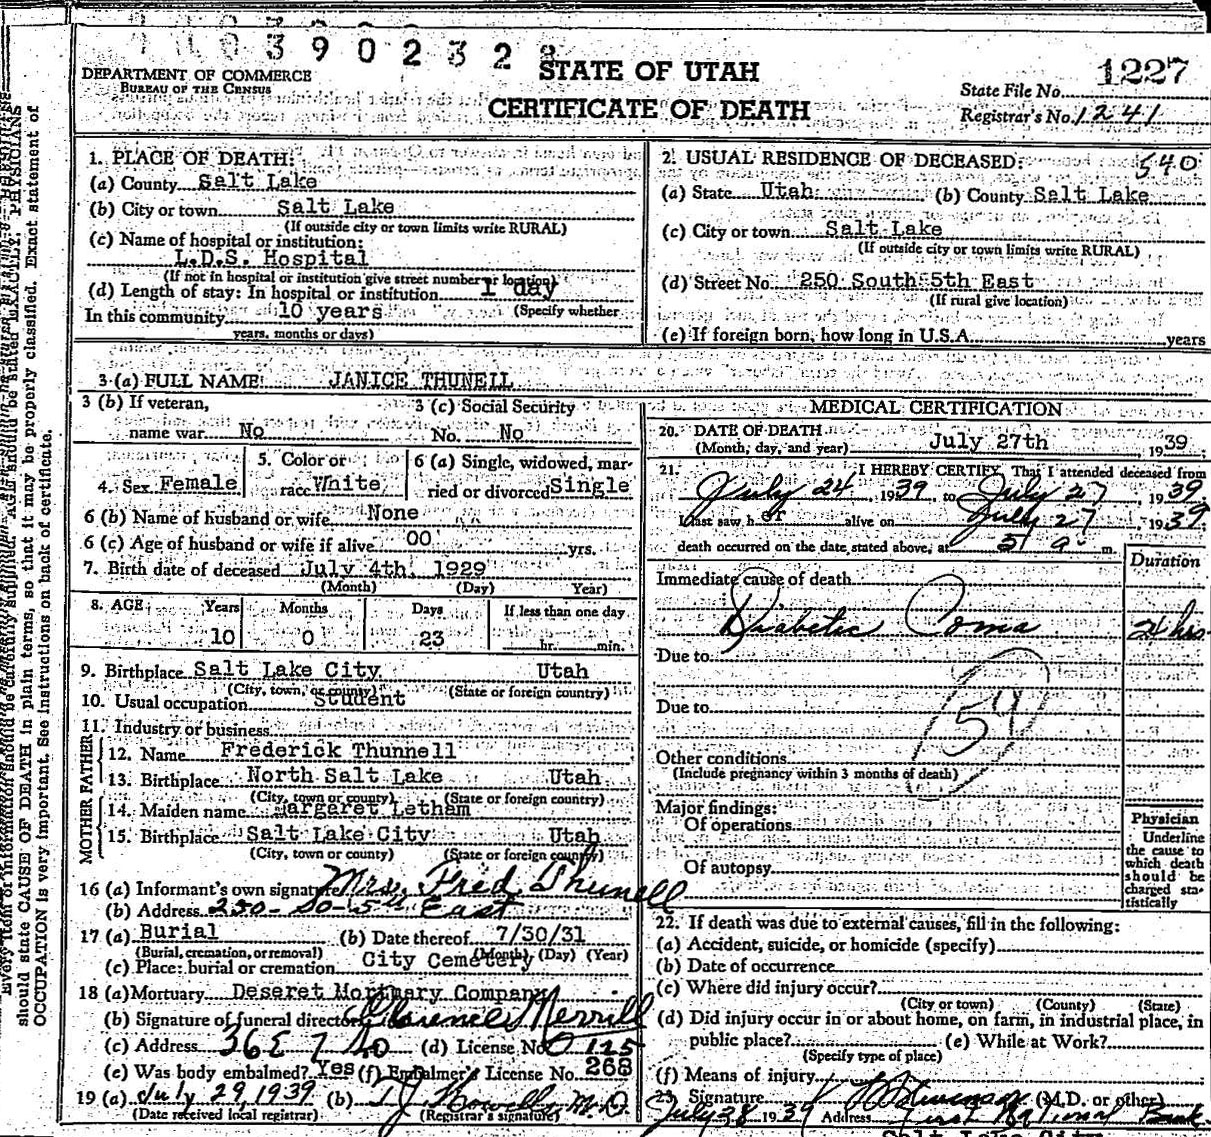 3902328
DEPARTMENT OF COMMERCE
BUREAU OF THE CENSUS
STATE OF UTAH
CERTIFICATE OF DEATH
1227
State File No.
Registrar's No. 1241
1. PLACE OF DEATH:
(a) County Salt Lake
(b) City or town Salt Lake
(If outside city or town limits write RURAL)
(c) Name of hospital or institution:
L.D.S. Hospital
(If not in hospital or institution give street number or location)
(d) Length of stay: In hospital or institution 1 day
(Specify whether
In this community 10 years
years, months or days)
2. USUAL RESIDENCE OF DECEASED: 540
(a) State Utah (b) County Salt Lake
(c) City or town Salt Lake
(If outside city or town limits write RURAL)
(d) Street No. 250 South 5th East
(If rural give location)
(e) If foreign born, how long in U.S.A. years
3 (a) FULL NAME: JANICE THUNELL
3 (b) If veteran,
name war No
3 (c) Social Security
No. No
4. Sex Female
5. Color or
race White
6 (a) Single, widowed, mar-
ried or divorced Single
6 (b) Name of husband or wife None
6 (c) Age of husband or wife if alive 00 yrs.
7. Birth date of deceased July 4th, 1929
(Month) (Day) Year)
8. AGE Years Months Days If less than one day
10 0 23 hr. min.
9. Birthplace Salt Lake City Utah
(City, town, or county) (State or foreign country)
10. Usual occupation Student
11. Industry or business
FATHER
12. Name Frederick Thunnell
13. Birthplace North Salt Lake Utah
(City, town or county) (State or foreign country)
MOTHER
14. Maiden name Margaret Letham
15. Birthplace Salt Lake City Utah
(City, town or county) (State or foreign country)
16 (a) Informant's own signature Mrs. Fred Thunell
(b) Address 250-So-5th East
17 (a) Burial (b) Date thereof 7/30/31
(Burial, cremation, or removal) (Month) (Day) (Year)
(c) Place: burial or cremation City Cemetery
18 (a) Mortuary Deseret Mortuary Company
(b) Signature of funeral director Clarence Merrill
(c) Address 36 E 7 So (d) License No. 0 125
(e) Was body embalmed? Yes (f) Embalmer's License No. 268
19 (a) July 29, 1939 (b) M.D.
(Date received local registrar) (Registrar's signature)
MEDICAL CERTIFICATION
20. DATE OF DEATH
(Month, day, and year) July 27th, 1939
21. I HEREBY CERTIFY, That I attended deceased from
July 24, 1939, to July 27, 1939
I last saw her alive on July 27, 1939
death occurred on the date stated above, at 5 a m.
Duration
Immediate cause of death
Diabetic Coma 24 hrs
Due to
Due to
Other conditions
(Include pregnancy within 3 months of death)
Major findings:
Of operations
Of autopsy
Physician
Underline
the cause to
which death
should be
charged sta-
tistically
22. If death was due to external causes, fill in the following:
(a) Accident, suicide, or homicide (specify)
(b) Date of occurrence
(c) Where did injury occur?
(City or town) (County) (State)
(d) Did injury occur in or about home, on farm, in industrial place, in
public place? (e) While at Work?
(Specify type of place)
(f) Means of injury
23. Signature (M.D. or other)
July 28 1939 Address First National Bank
Salt Lake City
should state CAUSE OF DEATH in plain terms, so that it may be properly classified. Exact statement of
OCCUPATION is very important. See instructions on back of certificate.